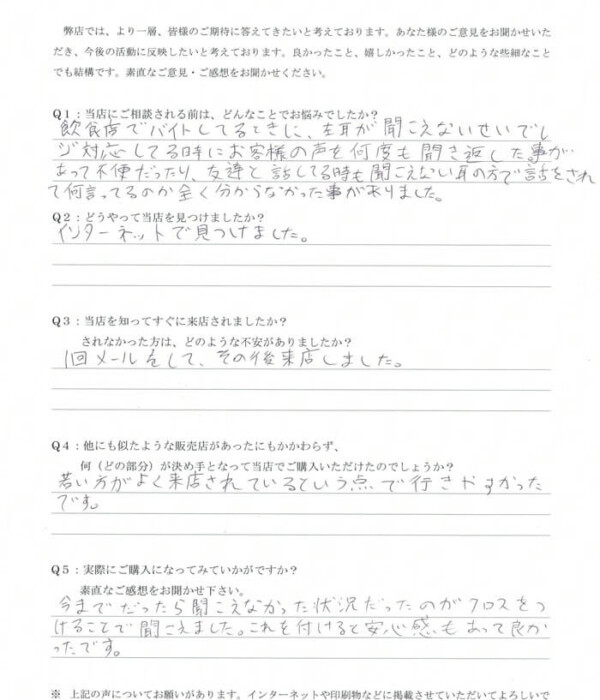 弊店では、より一層、皆様のご期待に答えてきたいと考えております。あなた様のご意見をお聞かせいた
だき、今後の活動に反映したいと考えております。良かったこと、嬉しかったこと、どのような些細なこと
でも結構です。素直なご意見・ご感想をお聞かせください。
Q1：当店にご相談される前は、どんなことでお悩みでしたか？
飲食店でバイトしてるときに、左耳が聞こえないせいでレ
ジ対応してる時にお客様の声を何度も聞き返した事が
あって不便だったり、友達と話してる時も聞こえない耳の方で話をされ
て何言ってるのか全く分からなかった事がありました。
Q2：どうやって当店を見つけましたか？
インターネットで見つけました。
Q3：当店を知ってすぐに来店されましたか？
されなかった方は、どのような不安がありましたか？
1回メールをして、その後来店しました。
Q4：他にも似たような販売店があったにもかかわらず、
何（どの部分）が決め手となって当店でご購入いただけたのでしょうか？
若い方がよく来店されているという点で行きやすかった
です。
Q5：実際にご購入になってみていかがですか？
素直なご感想をお聞かせ下さい。
今までだったら聞こえなかった状況だったのがクロスをつ
けることで聞こえました。これを付けると安心感もあって良か
ったです。
※ 上記の声についてお願いがあります。インターネットや印刷物などに掲載させていただいてよろしいで